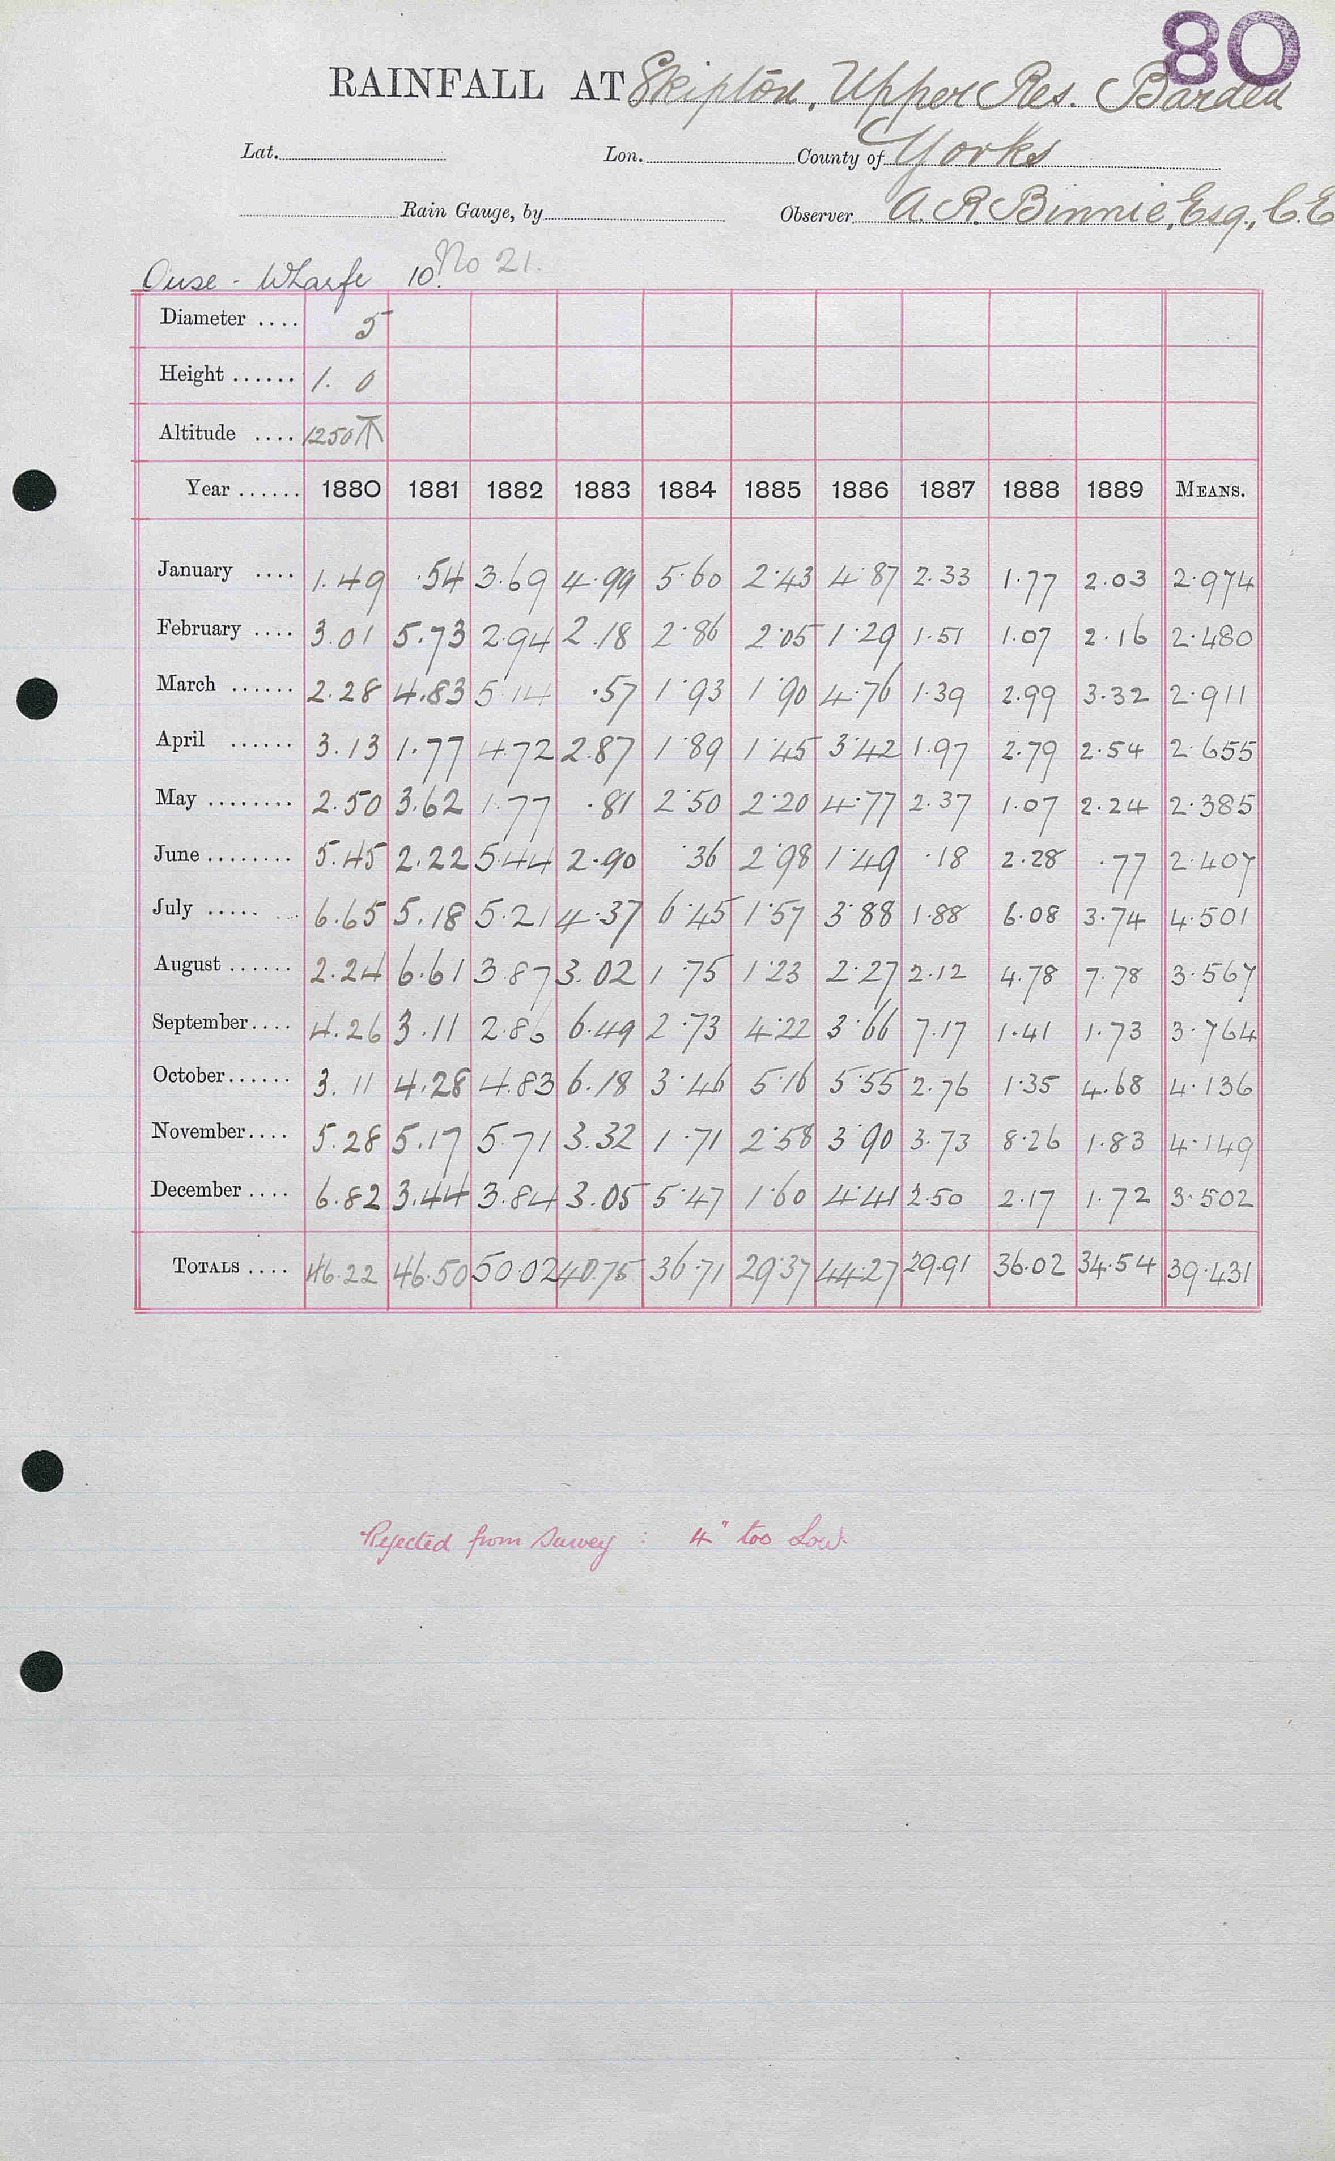 80
RAINFALL AT Skipton, Upper Res. Barden
Lat. Lon. County of Yorks
Rain Gauge, by Observer A. R. Binnie, Esq., C.E
Ouse - Wharfe 10. No 21.
Diameter .... 5
Height ...... 1. 0
Altitude .... 1250
Year ...... 1880 1881 1882 1883 1884 1885 1886 1887 1888 1889 MEANS.
January .... 1.49 .54 3.69 4.99 5.60 2.43 4.87 2.33 1.77 2.03 2.974
February .... 3.01 5.73 2.94 2.18 2.86 2.05 1.29 1.51 1.07 2.16 2.480
March ...... 2.28 4.83 5.14 .57 1.93 1.90 4.76 1.39 2.99 3.32 2.911
April ...... 3.13 1.77 4.72 2.87 1.89 1.45 3.42 1.97 2.79 2.54 2.655
May ........ 2.50 3.62 1.77 .81 2.50 2.20 4.77 2.37 1.07 2.24 2.385
June ........ 5.45 2.22 5.44 2.90 .36 2.98 1.49 .18 2.28 .77 2.407
July ........ 6.65 5.18 5.21 4.37 6.45 1.57 3.88 1.88 6.08 3.74 4.501
August ...... 2.24 6.61 3.87 3.02 1.75 1.23 2.27 2.12 4.78 7.78 3.567
September.... 4.26 3.11 2.86 6.49 2.73 4.22 3.66 7.17 1.41 1.73 3.764
October...... 3.11 4.28 4.83 6.18 3.46 5.16 5.55 2.76 1.35 4.68 4.136
November.... 5.28 5.17 5.71 3.32 1.71 2.58 3.90 3.73 8.26 1.83 4.149
December .... 6.82 3.44 3.84 3.05 5.47 1.60 4.41 2.50 2.17 1.72 3.502
TOTALS .... 46.22 46.50 50.02 40.75 36.71 29.37 44.27 29.91 36.02 34.54 39.431
Rejected from Survey : 4" too Low.